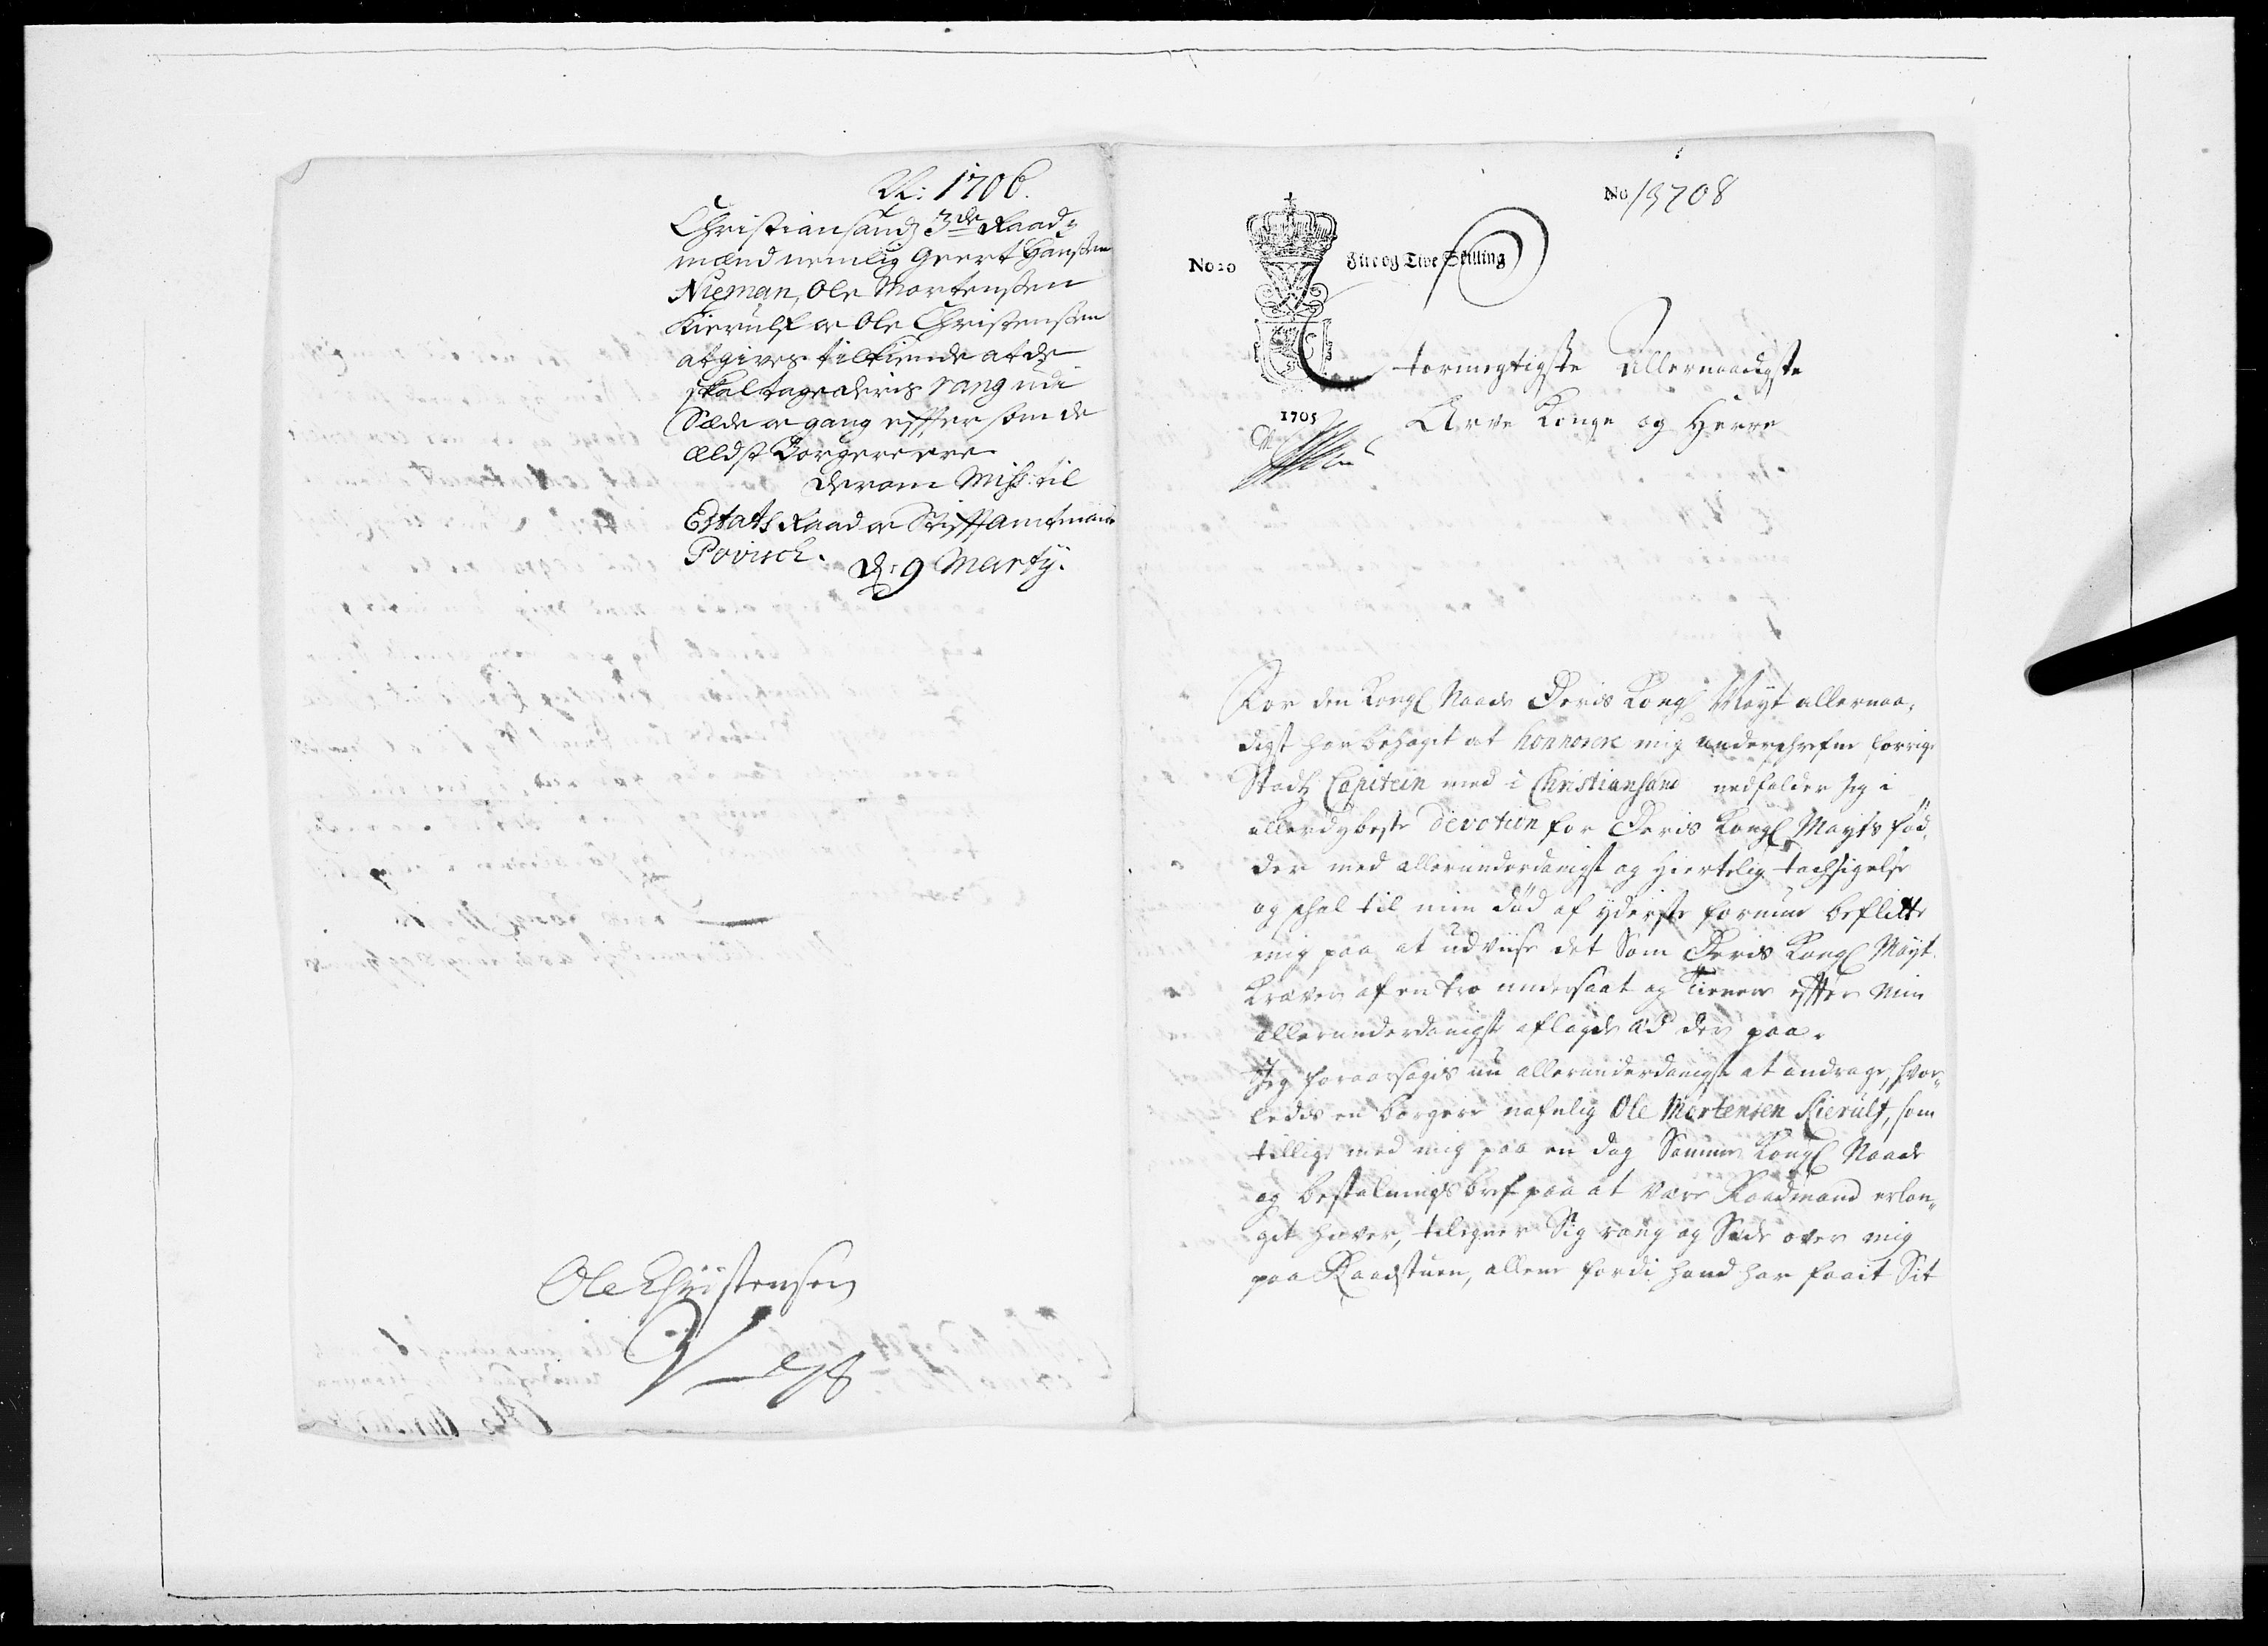 A: 1706.
Christiansandz 3de Raadz
mænd nemlig Geert Hanssen
Nieman, Ole Mortenssen
Kierulf og Ole Christenssen
at gives tilkiende at de
skal tage deris rang udi
Sæde og gang effter som de
ældst Borgere ere
Derom Miss: til
Estats Raad og Stifftamtmand
Povisch.
D: 9 Marty.
Ole Christensen
No 13708
No 20
Fire og Tive Skilling
1705
Stormegtigste Allernaadigste
Arve Konge og Herre
For den Kongl Naade Deris Kongl Mayt allernaa,,
digst har behaget at honnorere mig underschrefne forrige
Stadtz Capitein med i Christiansand nedfalder Jeg i
allerdybeste devotion for Deris Kongl Mayts fød,,
der med allerunderdanigst og Hiertelig tachsigelse
og schal til min død af yderste formue beflitte
mig paa at udviise det Som Deris Kongl Mayt.
Kræver af en tro undersaat og Tienere effter Min
allerunderdanigst aflagde æd der paa.
Jeg foraarsagis nu allerunderdanigst at andrage, hvor,,
ledis en borgere nafnlig Ole Mortensen Kierulf, som
tillige med mig paa en dag Samme Kongl Naade
og bestalnings bref paa at være Raadmand erlan,,
get hæver, tilegner Sig rang og Sæde over mig
paa Raadstuen, allene fordi hand har faait Sit